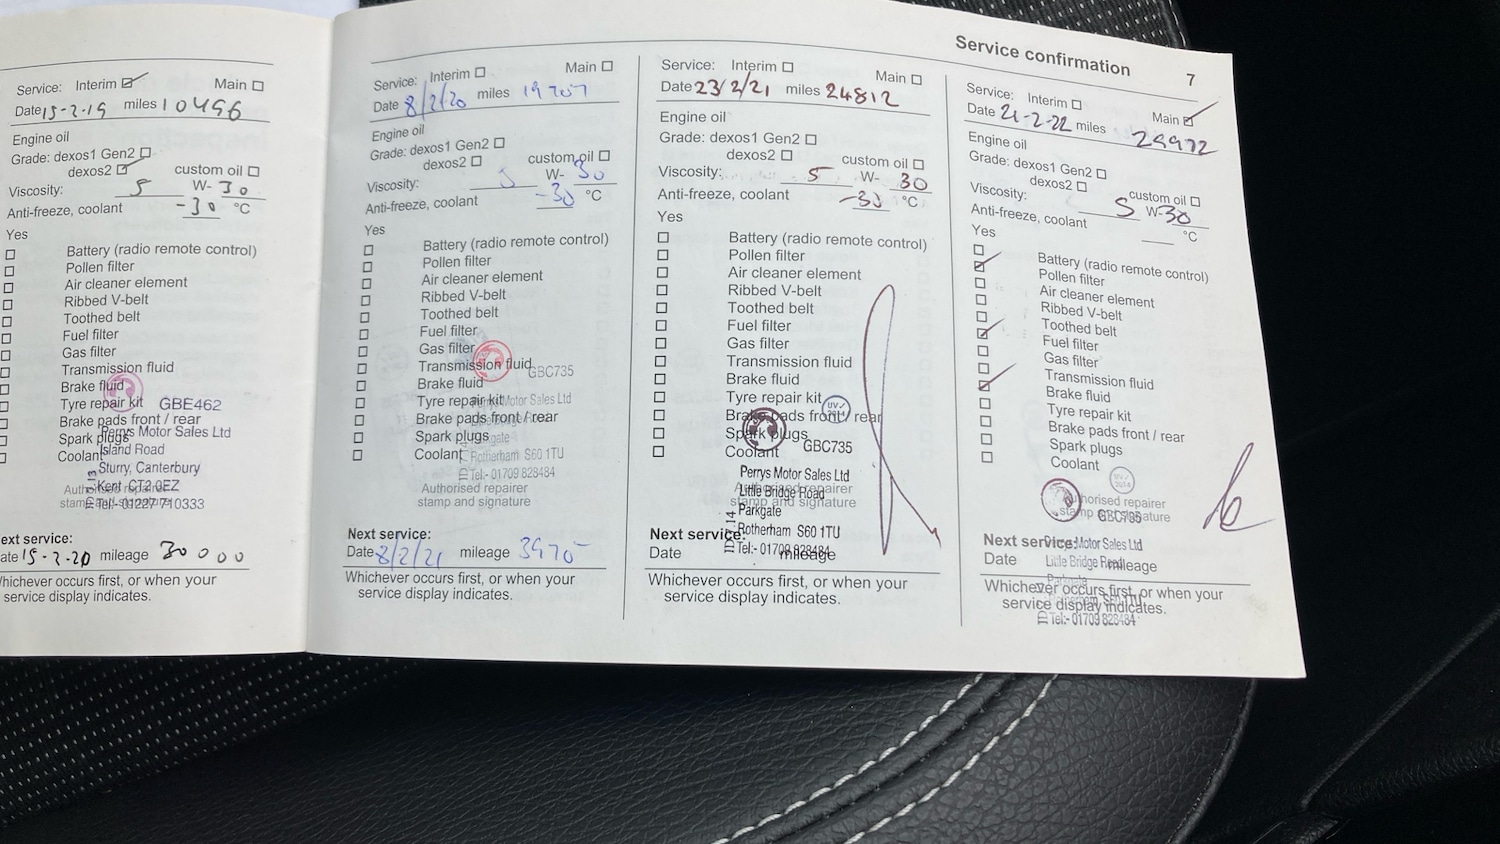 Service confirmation 7
Service: Interim Main
Date 15-2-19 miles 10496
Engine oil
Grade: dexos1 Gen2
dexos2 custom oil
Viscosity: 5 W- 30
Anti-freeze, coolant -30 °C
Yes
Battery (radio remote control)
Pollen filter
Air cleaner element
Ribbed V-belt
Toothed belt
Fuel filter
Gas filter
Transmission fluid
Brake fluid
Tyre repair kit GBE462
Brake pads front / rear
Perrys Motor Sales Ltd
Spark plugs
Island Road
Coolant
Sturry, Canterbury
Kent CT2 0EZ
Authorised repairer
stamp
Tel:- 01227 710333
ext service:
ate 15-2-20 mileage 30000
Whichever occurs first, or when your
service display indicates.
Service: Interim Main
Date 8/2/20 miles 19707
Engine oil
Grade: dexos1 Gen2
dexos2 custom oil
Viscosity: 5 W- 30
Anti-freeze, coolant -30 °C
Yes
Battery (radio remote control)
Pollen filter
Air cleaner element
Ribbed V-belt
Toothed belt
Fuel filter
Gas filter
Transmission fluid
GBC735
Brake fluid
Tyre repair kit
Perrys Motor Sales Ltd
Brake pads front / rear
Spark plugs
Parkgate
Coolant
Rotherham S60 1TU
Tel:- 01709 828484
Authorised repairer
stamp and signature
Next service:
Date 8/2/21 mileage
Whichever occurs first, or when your
service display indicates.
Service: Interim Main
Date 23/2/21 miles 24812
Engine oil
Grade: dexos1 Gen2
dexos2 custom oil
Viscosity: 5 W- 30
Anti-freeze, coolant -30 °C
Yes
Battery (radio remote control)
Pollen filter
Air cleaner element
Ribbed V-belt
Toothed belt
Fuel filter
Gas filter
Transmission fluid
Brake fluid
Tyre repair kit
Brake pads front / rear
Spark plugs
GBC735
Coolant
Perrys Motor Sales Ltd
Authorised repairer
Little Bridge Road
stamp and signature
Parkgate
Rotherham S60 1TU
Next service:
Tel:- 01709 828484
Date mileage
Whichever occurs first, or when your
service display indicates.
Service: Interim Main
Date 21-2-22 miles 29972
Engine oil
Grade: dexos1 Gen2
dexos2 custom oil
Viscosity: 5 W- 30
Anti-freeze, coolant °C
Yes
Battery (radio remote control)
Pollen filter
Air cleaner element
Ribbed V-belt
Toothed belt
Fuel filter
Gas filter
Transmission fluid
Brake fluid
Tyre repair kit
Brake pads front / rear
Spark plugs
Coolant
Authorised repairer
stamp and signature
GBC735
Next service:
Perrys Motor Sales Ltd
Date mileage
Little Bridge Road
Parkgate
Whichever occurs first, or when your
Rotherham S60 1TU
service display indicates.
Tel:- 01709 828484